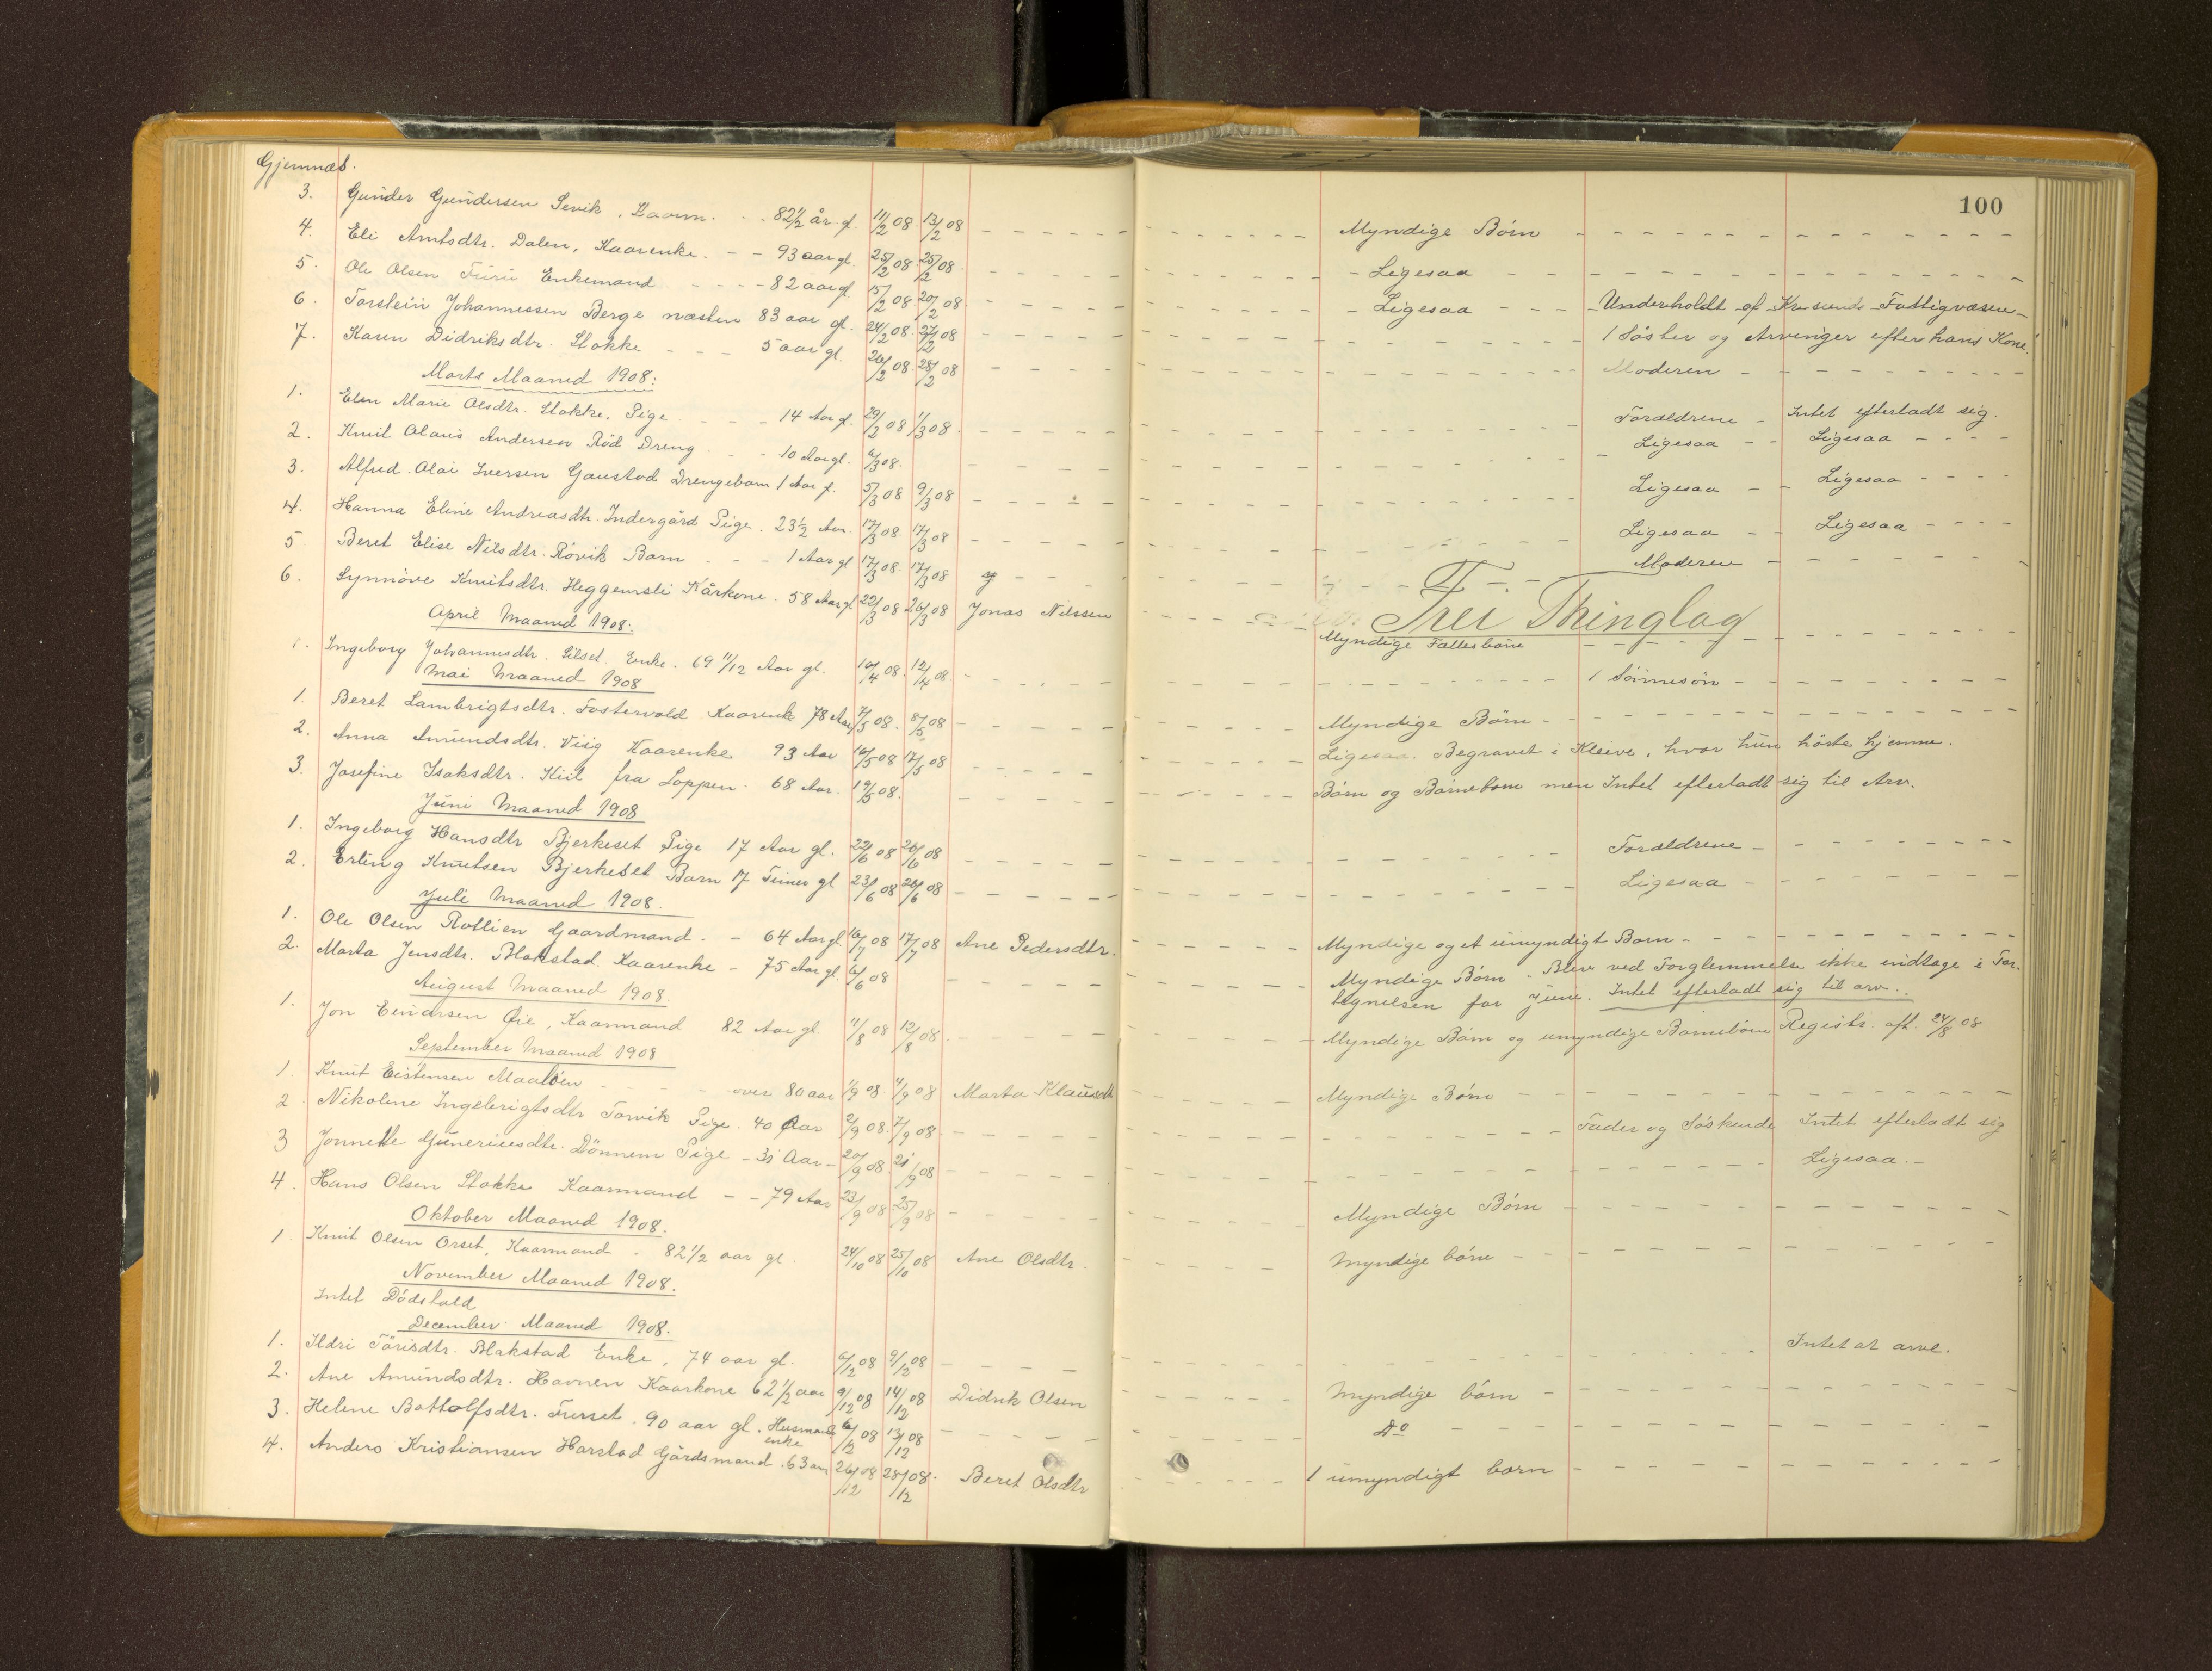 Gjemnæs.
100
3. Gunder Gundersen Sevik, Kaarm. - - 82½ år. gl. 11/2 08. 13/2 08 - - - Myndige Börn - - -
4. Eli Arntsdtr. Dalen, Kaarenke. - - 93 aar gl. 25/2 08. 25/2 08. - - - Ligesaa - - -
5. Ole Olsen Furu Enkemand - - - - 82 aar gl. 15/2 08. 20/2 08 - - - Ligesaa - - - Underholdt af Kr.sunds Fattigvæsen -
6. Torstein Johannessen Berge næsten 83 aar gl. 24/2 08. 27/2 08 - - - 1 Söster og Arvinger efter hans Kone.
7. Karen Didriksdtr. Stokke - - - 5 aar gl. 26/2 08. 28/2 08 - - - Moderen - - -
Marts Maaned 1908:
1. Elen Marie Olsdtr. Stokke. Pige - - - 14 Aar gl. 29/2 08 1/3 08. - - - Forældrene - Intet efterladt sig.
2. Knut Olaus Andersen Röd Dreng - - - 10 Aar gl. 6/3 08. - - - Ligesaa - - Ligesaa - - -
3. Alfred Olai Iversen Gaustad Drengebarn 1 Aar gl. 5/3 08 9/3 08 - - - Ligesaa - - Ligesaa - - -
4. Hanna Eline Andreasdtr. Indergård Pige. 23½ Aar. 17/3 08. 17/3 08 - - - Ligesaa - - Ligesaa - - -
5. Beret Elise Nilsdtr. Rövik Barn - - 1 Aar gl 17/3 08. 17/3 08 - - - Moderen - - -
Trei Thinglag
6. Synnöve Knutsdtr. Heggemsli Kårkone. 58 Aar gl 22/3 08 26/3 08 Jonas Nilssen - - - Myndige Fællesbörn - - -
April Maaned 1908:
1. Ingeborg Johannesdtr. Silset. Enke. 69 11/12 Aar gl. 10/4 08. 12/4 08. - - - 1 Sönnesön - - -
Mai Maaned 1908
1. Beret Lambrigtsdtr. Fostervold Kaarenk 78 Aar 7/5 08. 8/5 08 - - - Myndige Börn - - -
2. Anna Amundsdtr. Viig Kaarenke 93 Aar 16/5 08 17/5 08 - - - Ligesaa. Begravet i Kleive, hvor hun hörte hjemme.
3. Josefine Isaksdtr. Kiil fra Loppen. 68 Aar. 19/5 08. - - - Börn og Börnebörn men Intet efterladt sig til Arv.
Juni Maaned 1908
1. Ingeborg Hansdtr Bjerkeset Pige 17 Aar gl. 22/6 08 26/6 08 - - - Forældrene - - -
2. Erling Knutsen Bjerkeset Barn 17 Timer gl 23/6 08 26/6 08 - - - Ligesaa - - -
Juli Maaned 1908.
1. Ole Olsen Rotlien Gaardmand. - 64 Aar gl. 16/7 08 17/7 08 Ane Pedersdtr. - - - Myndige og et umyndigt Barn - - -
2. Marta Jensdtr. Blakstad. Kaarenke - 75 Aar gl 6/6 08 - - - Myndige Börn - Blev ved Forglemmelse ikke indtage i For-
tegnelsen for Juni. Intet efterladt sig til arv..
August Maaned 1908.
1. Jon Einarsen Öie, Kaarmand 82 Aar gl 11/8 08 12/8 08. - - - Myndige Börn og umyndige Börnebörn Registr. aft. 24/8 08
September Maaned 1908
1. Knut Eistensen Maalöen - - - over 80 aar 1/9 08 4/9 08 Marta Klausdt - - - Myndige Börn - - -
2 Nikoline Ingebrigtsdtr Torvik Pige. 40 Aar 2/9 08. 7/9 08. - - - Fader og Söskende Intet efterladt sig
3 Jonnette Gunericusdtr. Dönnem Pige - 31 Aar - 20/9 08. 21/9 08 - - - Ligesaa. -
4. Hans Olsen Stokke Kaarmand - - 79 Aar 23/9 08 25/9 08 - - - Myndige Börn - - -
Oktober Maaned 1908.
1. Knut Olsen Orset, Kaarmand - 82½ aar gl. 24/10 08 25/10 08 Ane Olsdtr. - - - Myndige börn - - -
November Maaned 1908.
Intet Dödsfald
December Maaned 1908.
1. Ildri Tårisdtr. Blakstad Enke, 74 aar gl. 6/12 08 9/12 08 - - - Intet at arve.
2. Ane Amundsdtr. Havnen Kaarkone 62½ aar 9/12 08 14/12 08 Didrik Olsen - - - Myndige börn - - -
3. Helene Bottolfsdtr. Furset. 90 aar gl. Husmands enke 6/12 08 13/12 08 - - - do - - -
4. Anders Kristiansen Harstad Gårdsmand. 63 aar 26/12 08 28/12 08. Beret Olsdtr - - - 1 umyndigt barn - - -